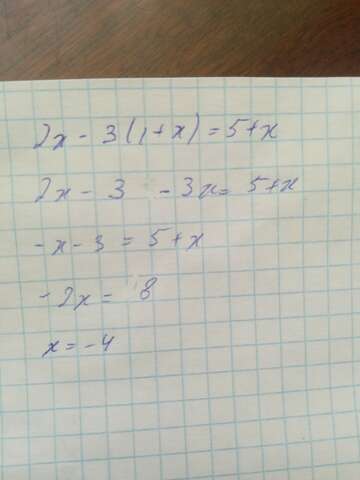 2x - 3(1+x)=5+x
2x - 3 - 3x= 5+x
-x-3=5+x
-2x= 8
x=-4